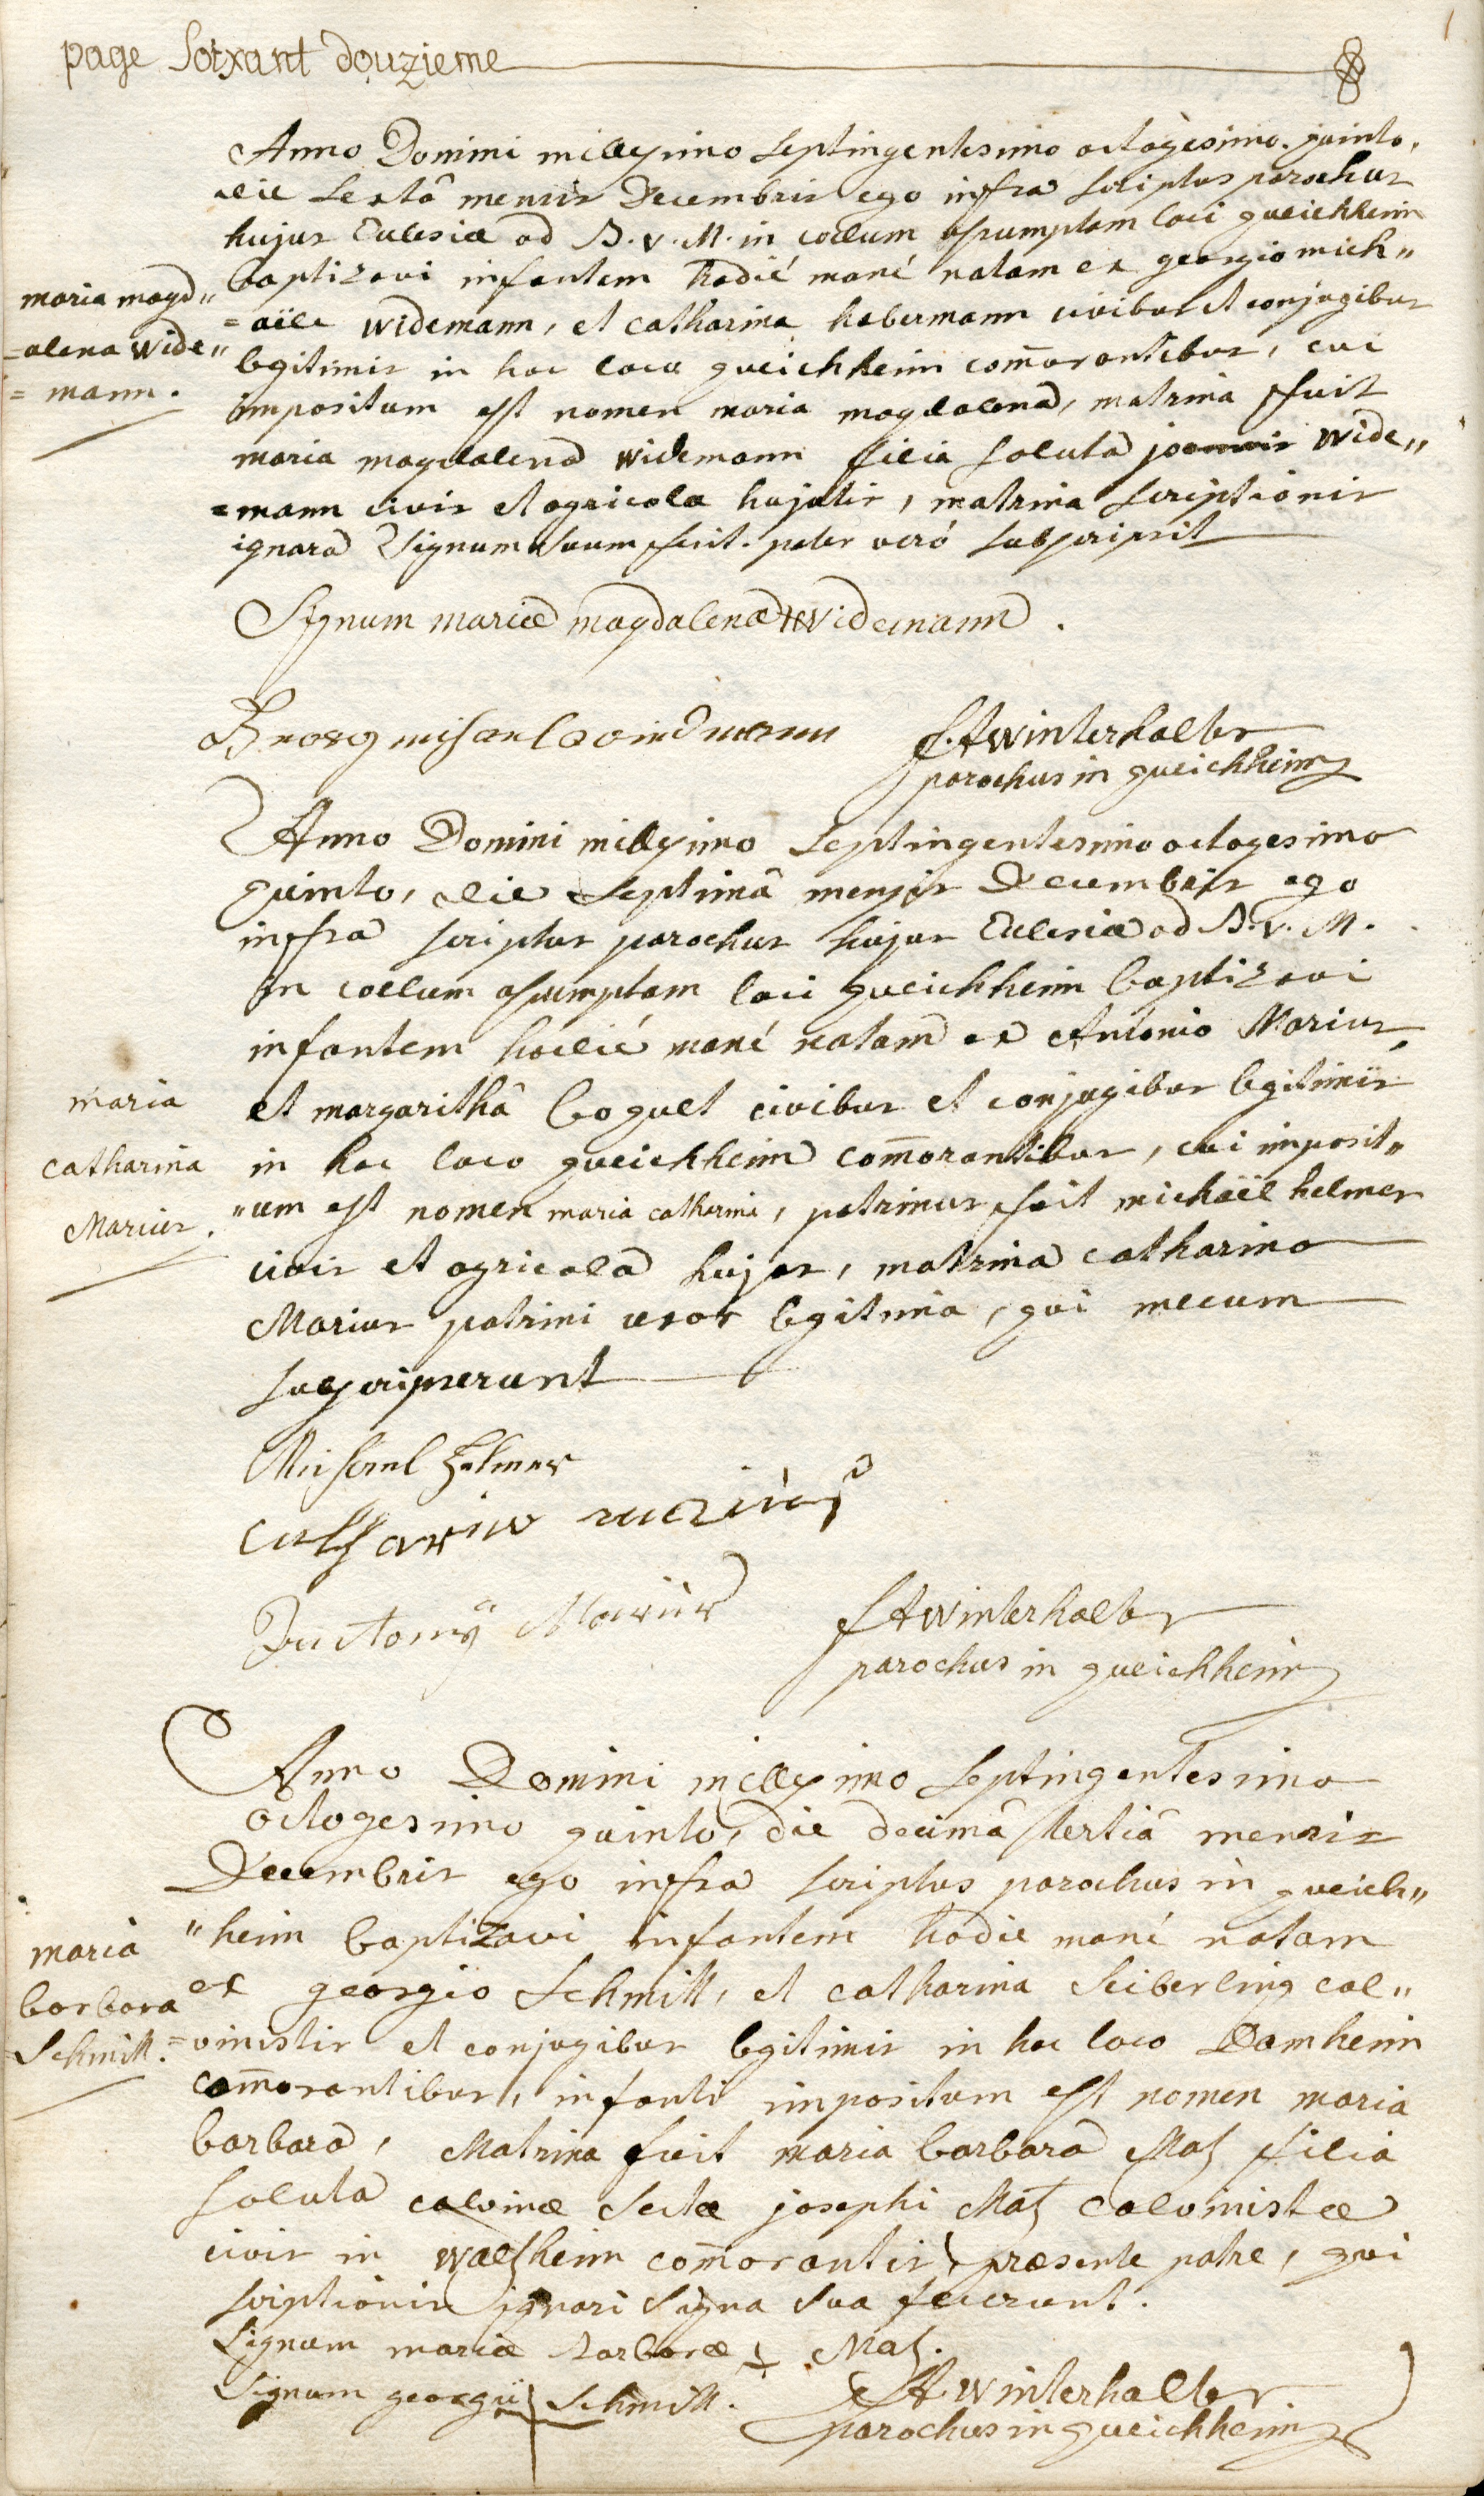 page soixant douzieme
Anno Domini millesimo septingentesimo octogesimo quinto,
die sextâ mensis Decembris ego infra scriptus parochus
hujus Eclesiæ ad B. v. M. in coelum assumptam loci queichheim
baptizavi infantem hodié mané natam ex georgio mich„
maria magd„
=aële widemann, et catharina habermann civibus et conjugibus
=alena wide„
legitimis in hoc loco queichheim com̄orantibus, cui
=mann.
impositum est nomen maria magdalena, matrina fuit
maria magdalena widemann filia soluta joannis wide„
=mann civis et agricolæ hujatis, matrina scriptionis
ignara signum suum fecit. pater veró subscripsit
Signum mariæ magdalenæ + widemann.
f. A winterhalter
parochus in queichheim
Anno Domini millesimo septingentesimo octogesimo
quinto, die septimâ mensis Decembris ego
infra scriptus parochus hujus Eclesiæ ad B. v. M.
in coelum assumptam loci queichheim baptizavi
infantem hodié mané natam ex Antonio Marius
maria
et margarithâ boquet civibus et conjugibus legitimis
catharina
in hoc loco queichheim com̄orantibus, cui imposit„
Marius.
„um est nomen maria catharina, patrinus fuit michaël helmer
civis et agricola hujas, matrina catharina
Marius patrini uxor legitima, qui mecum
subscripserunt
Michael Helmer
Catharina Mariuss
Antoni Marius
f A winterhalter
parochus in queichheim
Anno Domini millesimo septingentesimo
octogesimo quinto, die decimâ tertiâ mensis
Decembris ego infra scriptus parochus in queich„
maria
„heim baptizavi infantem hodie mané natam
barbara
ex georgio Schmitt, et catharina Seiberling cal„
Schmitt.
=vinistis et conjugibus legitimis in hoc loco Damheim
com̄orantibus, infanti impositum est nomen maria
barbara, Matrina fuit maria barbara Matz filia
soluta calvinæ sectæ josephi Matz calvinistæ
civis in walsheim com̄orantis, præsente patre, qui
scriptionis ignari signa sua fecerunt.
Signum mariæ barbaræ + Matz.
Signum georgii + Schmitt.
f A winterhalter
parochus in queichheim